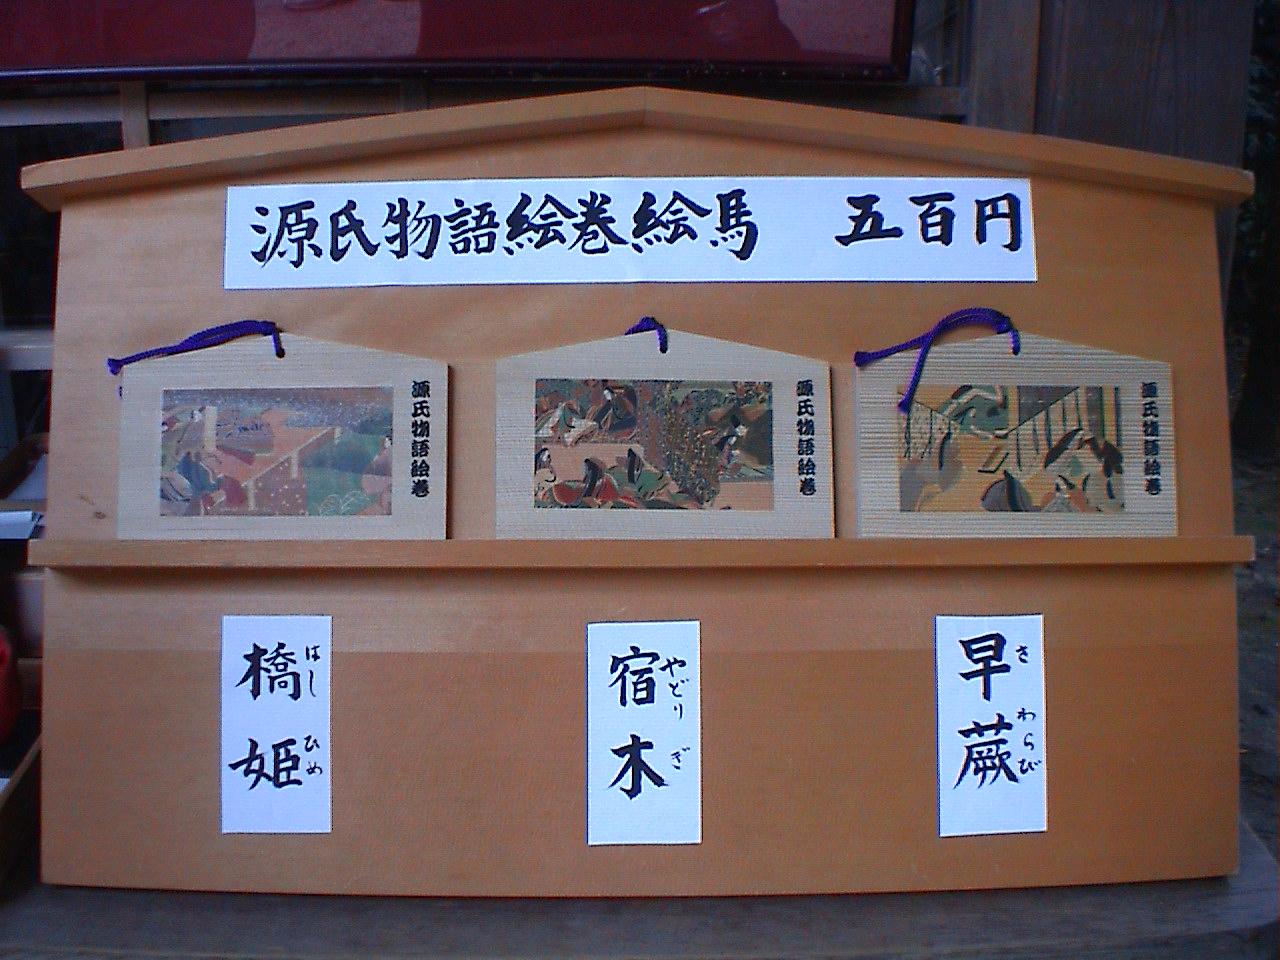 源氏物語絵巻絵馬　五百円
源氏物語絵巻
源氏物語絵巻
源氏物語絵巻
橋姫
はしひめ
宿木
やどりぎ
早蕨
さわらび